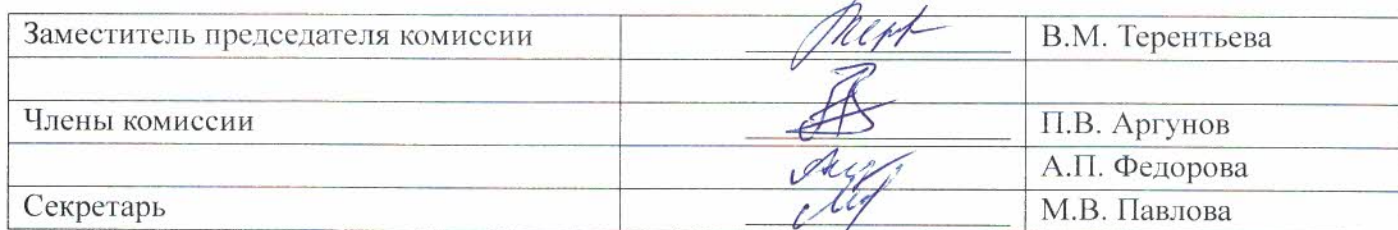 Заместитель председателя комиссии В.М. Терентьева
Члены комиссии П.В. Аргунов
А.П. Федорова
Секретарь М.В. Павлова